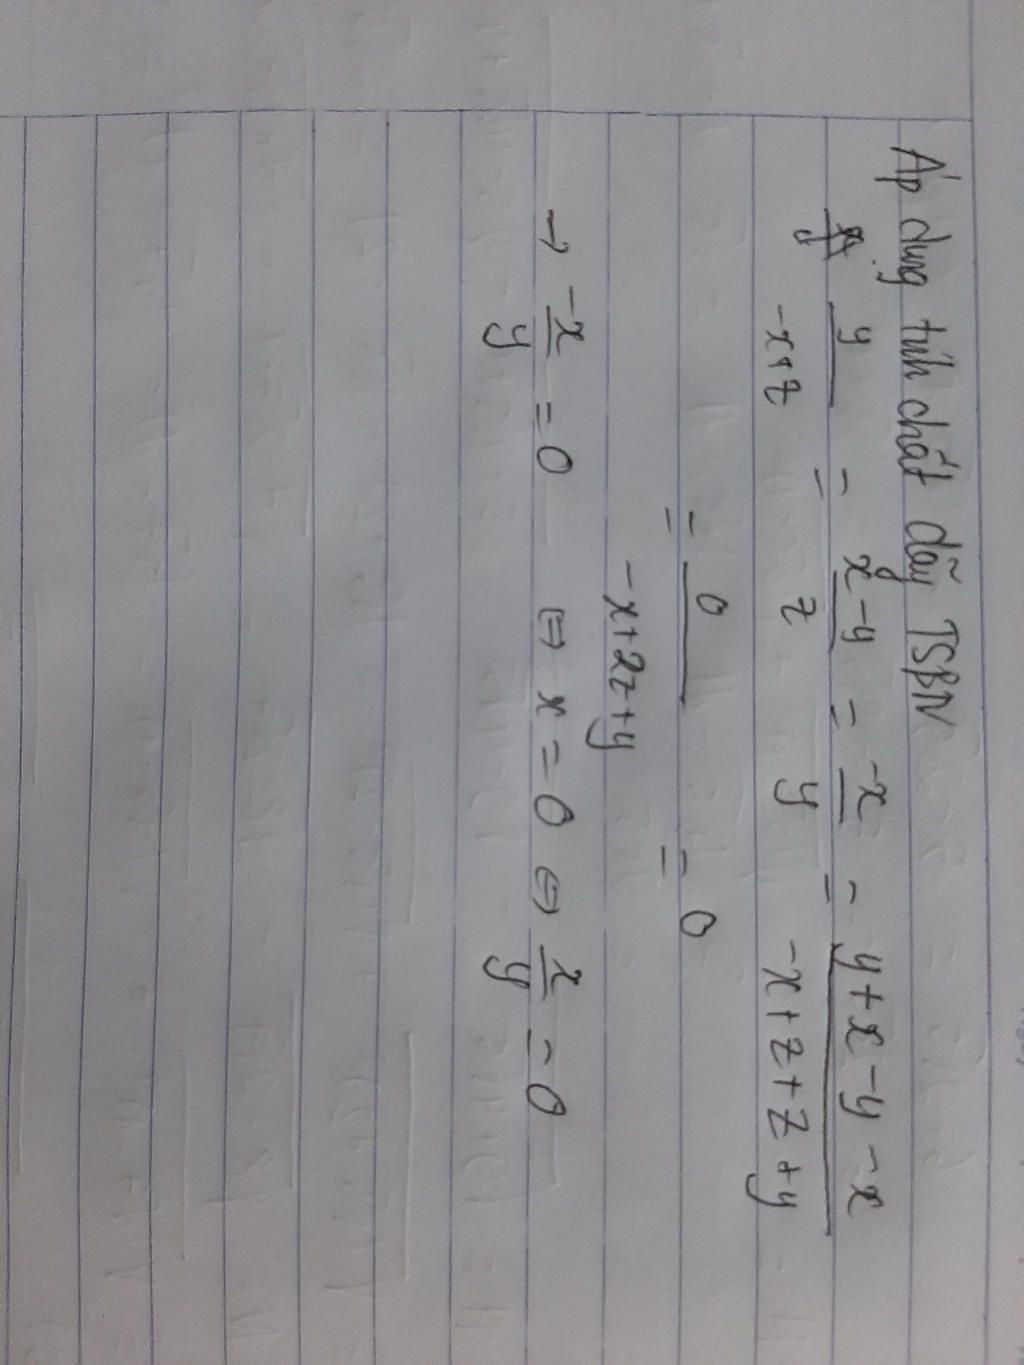 Áp dụng tính chất dãy TSBN
y/(-x+z) = (x-y)/z = -x/y = (y+x-y-x)/(-x+z+z+y)
= 0/(-x+2z+y) = 0
→ -x/y = 0 ⇔ x = 0 ⇔ x/y = 0